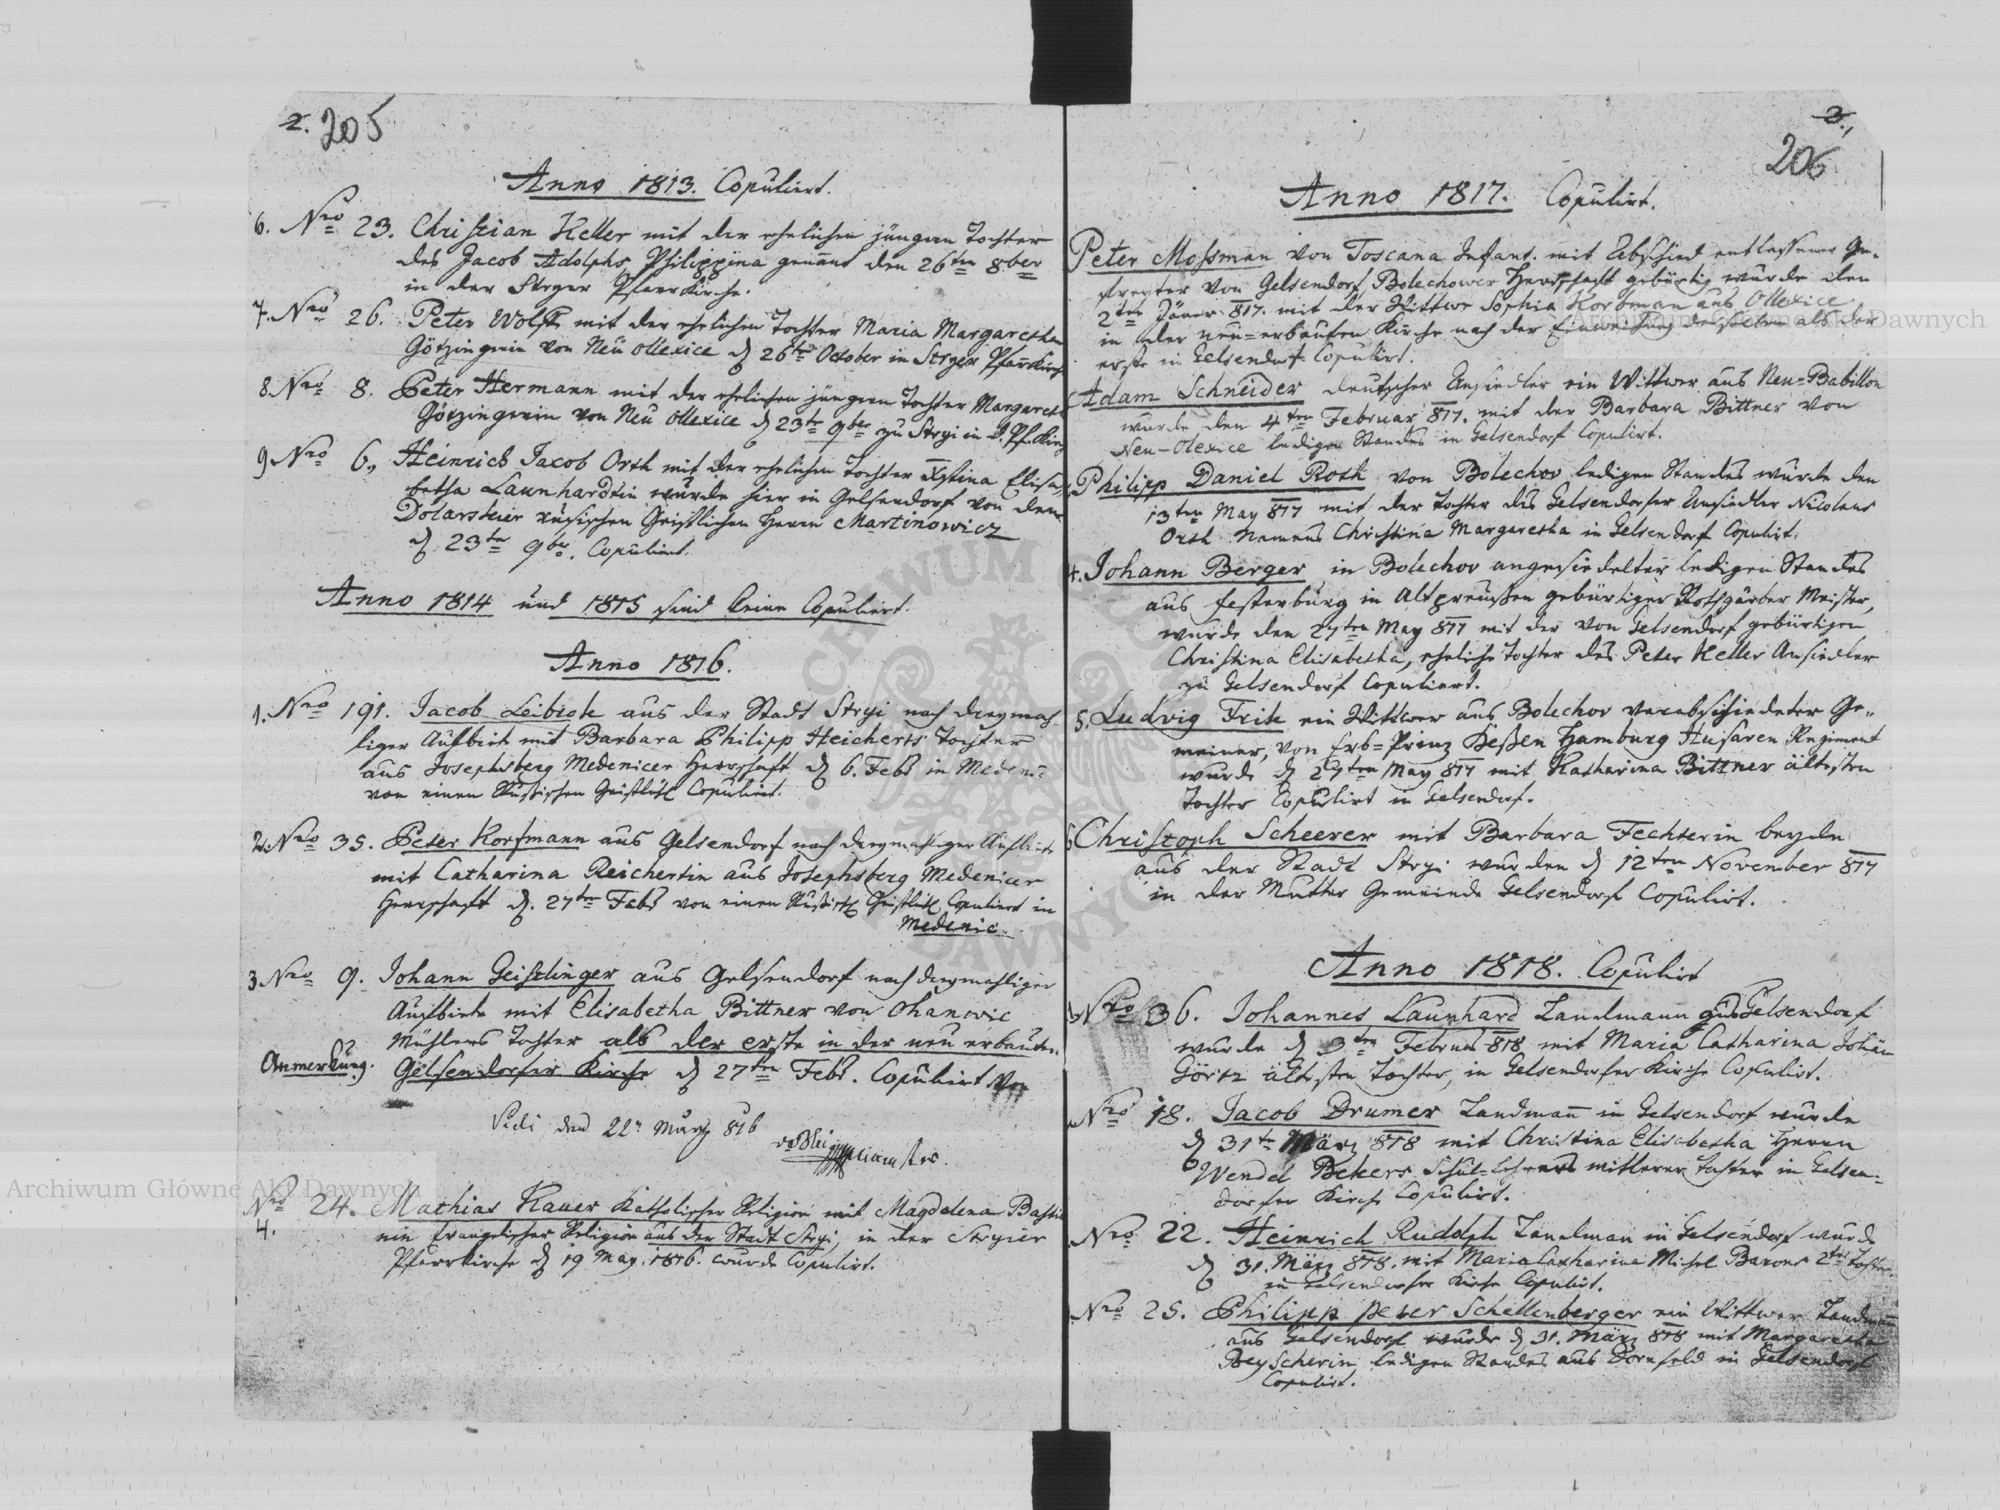 2. 205
Anno 1813. Copuliert.
6. Nro 23. Christian Keller mit der ehelichen jüngern Tochter
des Jacob Adolphs, Philippina genant den 26ten 8ber
in der Stryer Pfarrkirche.
7. Nro 26. Peter Wolff mit der ehelichen Tochter Maria Margaretha
Götzingerin von Neu Ollexice d 26ten October in Stryer Pfarrkirch
8. Nro 8. Peter Hermann mit der ehelichen jüngern Tochter Margareth
Götzingerin von Neu Ollexice d 23ten 9ber zu Stryi in d. Pf.
9. Nro 6. Heinrich Jacob Orth mit der ehelichen Tochter Xstina Elisa-
betha Launhardtin wurde hier in Gelsendorf von dem
rusischen Geistlichen Herrn Martinowicz
d 23ten 9ber. Copuliert.
Anno 1814 und 1815 sind keine Copuliert.
Anno 1816.
1. Nro 191. Jacob Leibrok aus der Stadt Stryi nach dreymah-
liger Aufbieth mit Barbara Philipp Heicherts Tochter
aus Josephsberg Medenicer Herrschaft d 6. Feb in
von einen Russischen Copuliert.
2. Nro 35. Peter Korfmann aus Gelsendorf nach dreymahliger Aufbieth
mit Catharina Reichertin aus Josephsberg Medenicer
Herrschaft d. 27ten Feb von einen Copuliert in
Medenic.
3. Nro 9. Johann Geislinger aus Gelsendorf nach dreymahliger
Aufbieth mit Elisabetha Bittner von Ohanwic
Mühlers Tochter als der erste in der neu erbauten
Anmerkung. Gelsendorfer Kirche d 27ten Feb. Copuliert
Vidi den 22n März 816
Nro 24. Mathias Kauer Katholischer Religion mit Magdalena
4. Evangelischer Religion aus der Stadt Stryi, in der Stryier
Pfarrkirche d 19 May 1816. wurde Copulirt.
3. 206
Anno 1817. Copulirt.
Peter Mossman von Toscana Infant. mit Abschied entlassener Ge-
freyter von Gelsendorf, Bolechower Herrschaft gebürtig wurde den
2ten Jäner 817. mit der Wittwe Sophia Korfman aus Ollexice
in der neu-erbauten Kirche nach der Einweihung derselben als der
erste in Gelsendorf Copulirt.
Adam Schneider deutscher Ansiedler ein Wittwer aus Neu-Babillon
wurde den 4ten Februar 817. mit der Barbara Bittner von
Neu-Olexice ledigen Standes in Gelsendorf Copulirt.
Philipp Daniel Roth von Bolechov ledigen Standes wurde den
13ten May 817 mit der Tochter des Gelsendorfer Ansiedler Nicolaus
Orth Namens Christina Margaretha in Gelsendorf Copulirt.
4. Johann Berger in Bolechov angesiedelter ledigen Standes
aus Festerburg in Altpreussen gebürtiger Rothgärber Meister,
wurde den 27ten May 817 mit der von Gelsendorf gebürtigen
Christina Elisabetha, eheliche Tochter des Peter Keller Ansiedler
zu Gelsendorf Copuliert.
5. Ludvig Fritz ein Wittwer aus Bolechov verabschiedeter Ge-
meiner, von Erb-Prinz Heßen Hamburg Husaren Regiment
wurde d 27ten May 817 mit Katharina Bittner ältesten
Tochter Copulirt in Gelsendorf.
6. Christoph Scheerer mit Barbara Fechterin beyde
aus der Stadt Stryi wurden d 12ten November 817
in der Mutter Gemeinde Gelsendorf Copulirt.
Anno 1818. Copulirt
Nro 36. Johannes Launhard Landmann aus Gelsendorf
wurde d 3ten Februar 818 mit Maria Catharina Johan
Görtz ältesten Tochter, in Gelsendorfer Kirche Copulirt.
Nro 18. Jacob Drumer Landman in Gelsendorf wurde
d 31ten März 818 mit Christina Elisabetha Herrn
Wendel Bekers Schul-Lehrers mitlerer Tochter in Gelsen-
dorfer Kirche Copulirt.
Nro 22. Heinrich Rudolph Landman in Gelsendorf wurde
d 31. März 818. mit Maria Catharina Michel Barons 2ten Tochter
in Gelsendorfer Kirche Copulirt.
Nro 25. Philipp Peter Schellenberger ein Wittwer Landman
aus Gelsendorf wurde d 31. März 818 mit Margaretha
ledigen Standes aus Dornfeld in Gelsendorf
Copulirt.
Archiwum Główne Akt Dawnych
Archiwum Główne Akt Dawnych